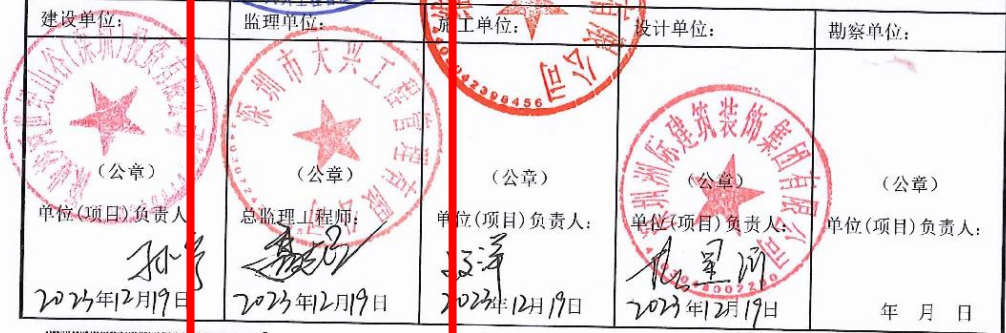 建设单位: 监理单位: 施工单位: 设计单位: 勘察单位:
深圳市大兴工程管理有限公司
有限公司
深圳洲际建筑装饰集团有限公司
(公章) (公章) (公章) (公章) (公章)
单位(项目)负责人 总监理工程师: 单位(项目)负责人: 单位(项目)负责人: 单位(项目)负责人:
2023年12月19日 2023年12月19日 2023年12月19日 2023年12月19日 年 月 日